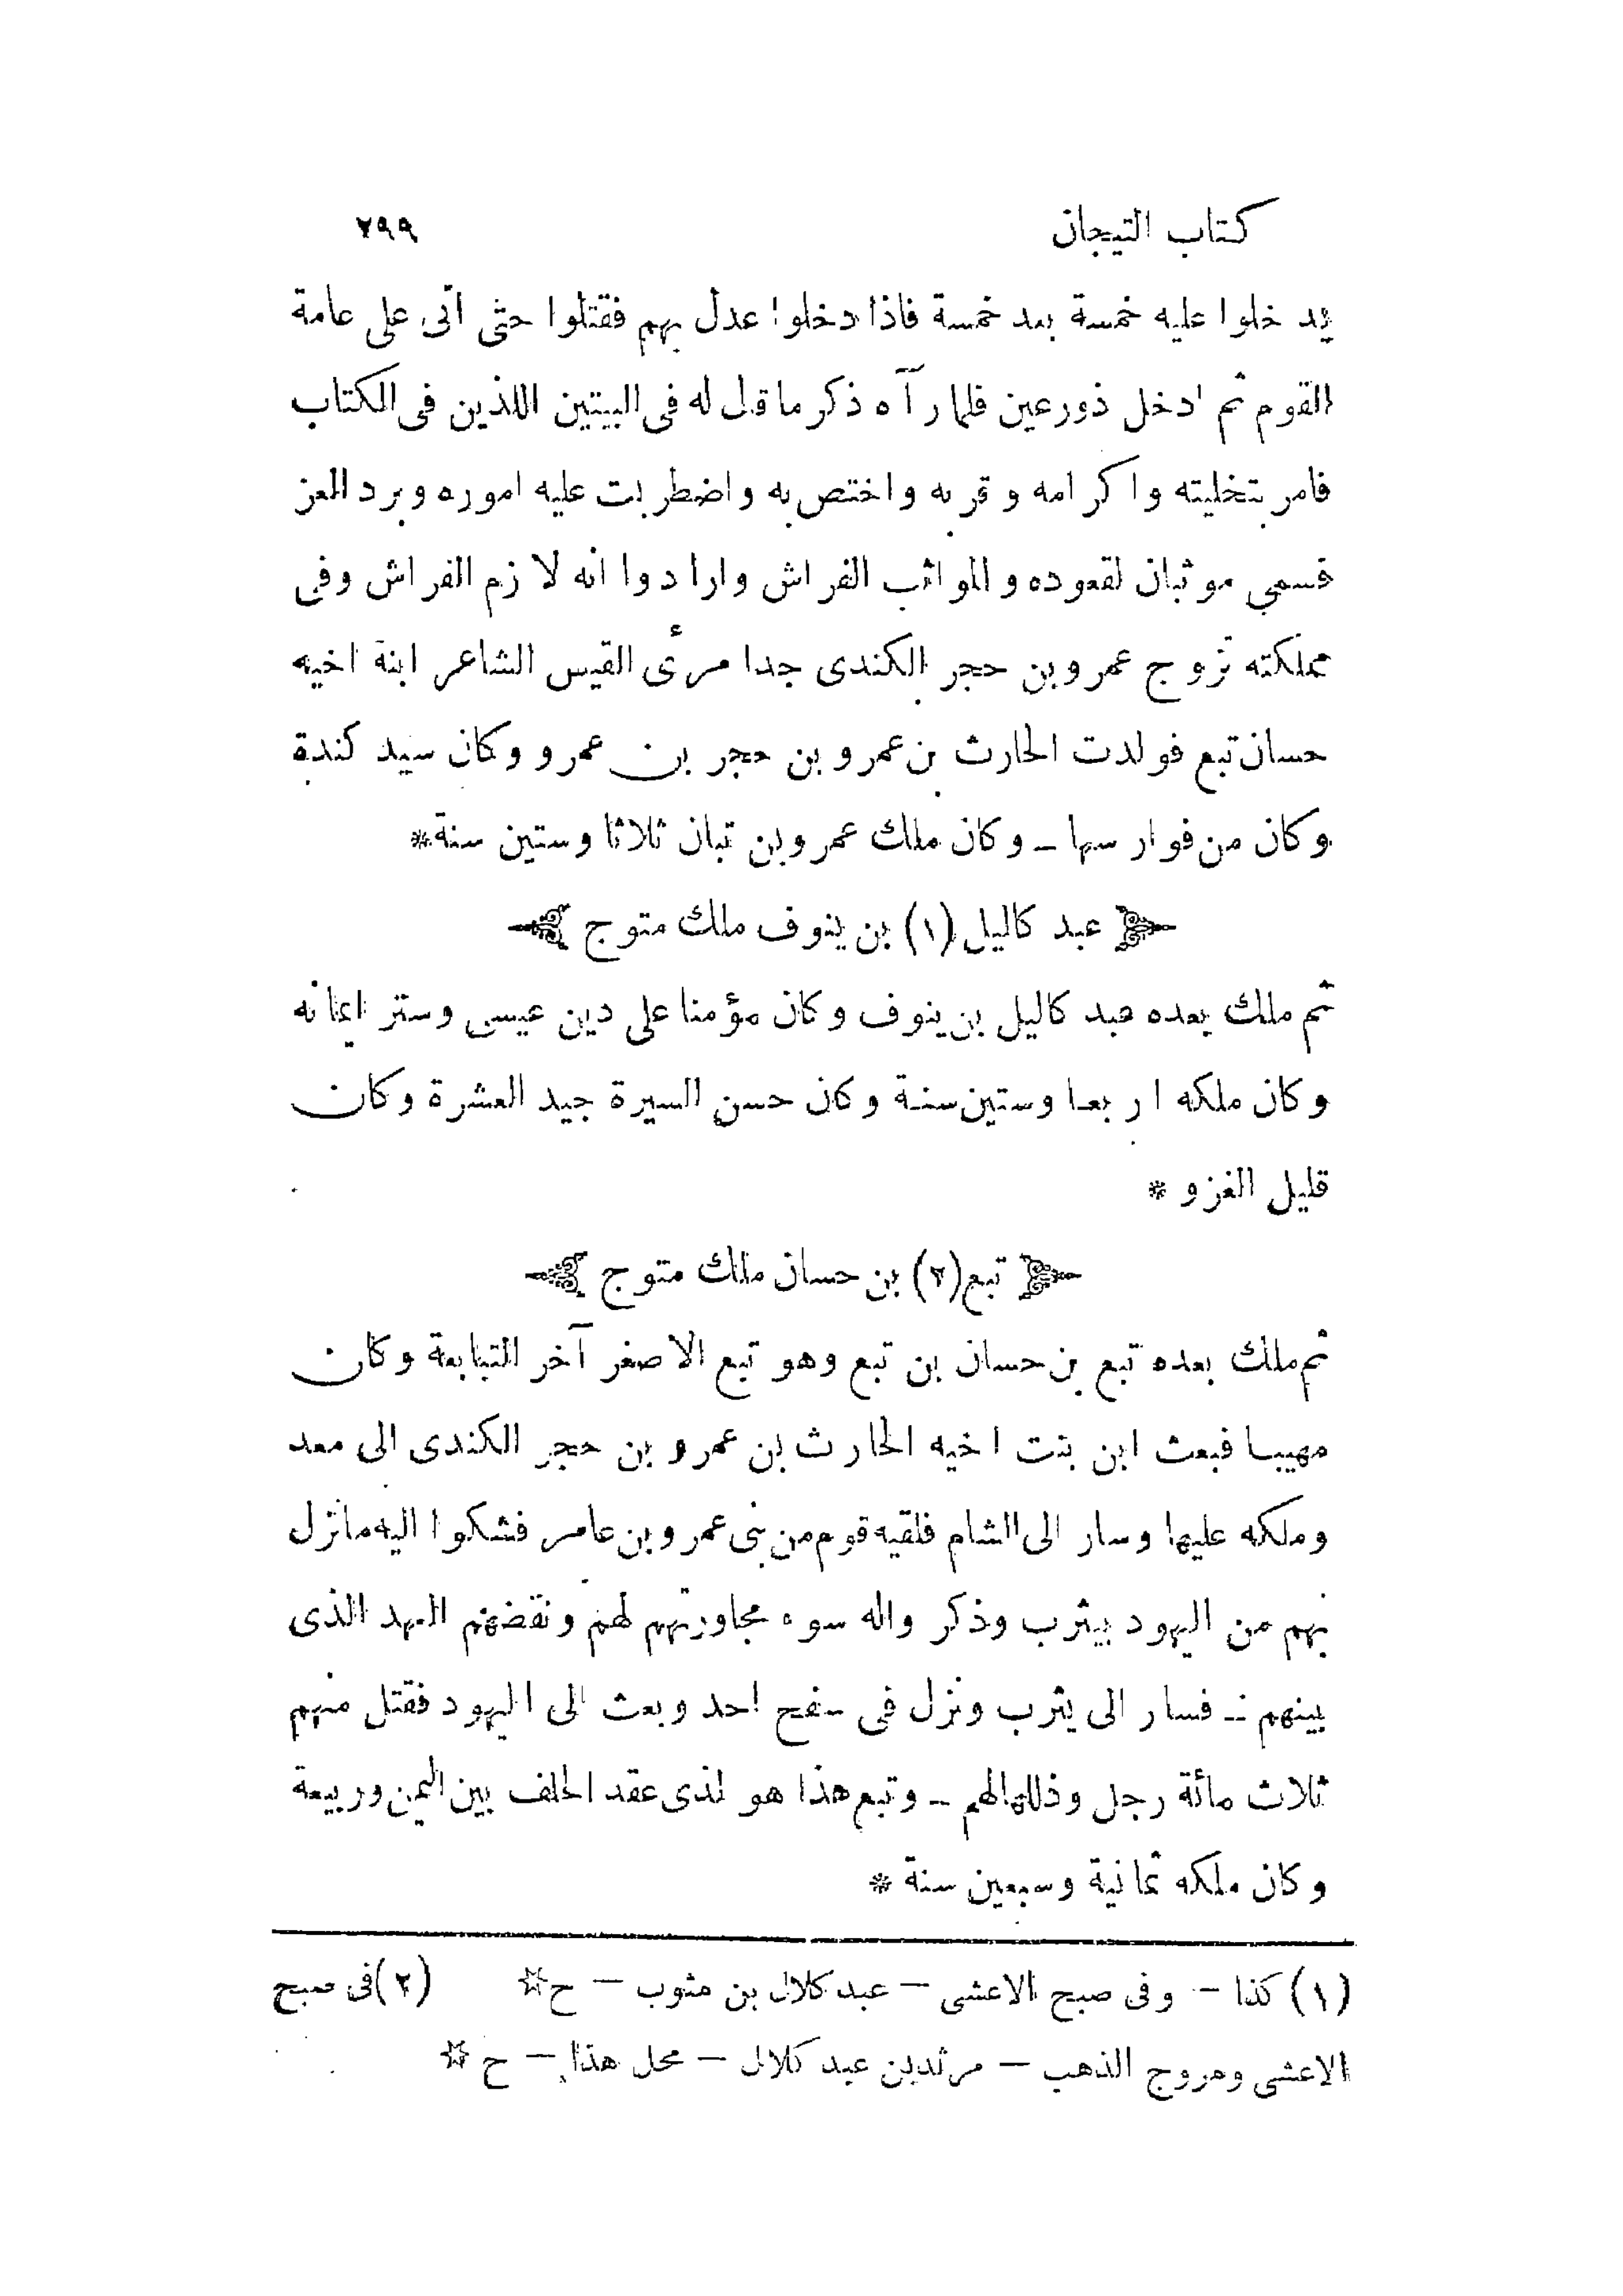 كتاب التيجان ٢٩٩
يدخلوا عليه خمسة بعد خمسة فاذا دخلوا عدل بهم فقتلوا حتى آتى على عامة
القوم ثم ادخل ذورعين فلما رآه ذكر ما قال له فى البيتين اللذين فى الكتاب
فامر بتخليته واكرامه وقربه واختص به واضطربت عليه اموره وبرد العز
فسمي موثبان لقعوده والمواثب الفراش وارادوا انه لازم الفراش وفى
مملكته تزوج عمرو بن حجر الكندى جد امرأى القيس الشاعر ابنة اخيه
حسان تبع فولدت الحارث بن عمرو بن حجر بن عمرو وكان سيد كندة
وكان من فوارسها ــ وكان ملك عمرو بن تبان ثلاثا وستين سنة*
عبد كاليل (١) بن ينوف ملك متوج
ثم ملك بعده عبد كاليل بن ينوف وكان مؤمنا على دين عيسى وستر ايمانه
وكان ملكه اربعا وستين سنة وكان حسن السيرة جيد العشرة وكان
قليل الغزو *
تبع (٢) بن حسان ملك متوج
ثم ملك بعده تبع بن حسان بن تبع وهو تبع الاصغر آخر التبابعة وكان
مهيبا فبعث ابن بنت اخيه الحارث بن عمرو بن حجر الكندى الى معد
وملكه عليها وسار الى الشام فلقيه قوم من بنى عمرو بن عامر فشكوا اليه ما نزل
بهم من اليهود بيثرب وذكر واله سوء مجاورتهم لهم ونقضهم العهد الذى
بينهم ــ فسار الى يثرب ونزل فى سفح احد وبعث الى اليهود فقتل منهم
ثلاث مائة رجل وذللها لهم ــ وتبع هذا هو لذى عقد الحلف بين اليمن وربيعة
وكان ملكه ثمانية وسبعين سنة *
(١) كذا – وفى صبح الاعشى – عبد كلال بن مثوب – ح☆ (٢) فى صبح
الاعشى ومروج الذهب – مرثد بن عبد كلال – محل هذا – ح ☆